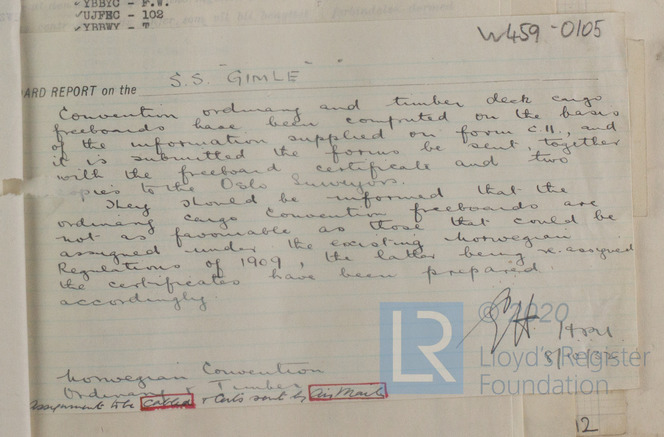 YBBYC - F.W.
UJFBC - 102
YBBWY - T
W459-0105
ARD REPORT on the S.S. "GIMLE"
Convention ordinary and timber deck cargo
freeboards have been computed on the basis
of the information supplied on form C.11., and
it is submitted the forms be sent, together
with the freeboard certificate and two
copies to the Oslo Surveyors.
They should be informed that the
ordinary cargo Convention freeboards are
not as favourable as those that could be
assigned under the existing Norwegian
Regulations of 1909, the latter being re-assigned
the certificates have been prepared
accordingly.
© 2020
LR Lloyd's Register
Foundation
Norwegian Convention
Ordinary & Timber
Assignment to be cabled & Certs sent by Air Mail
12